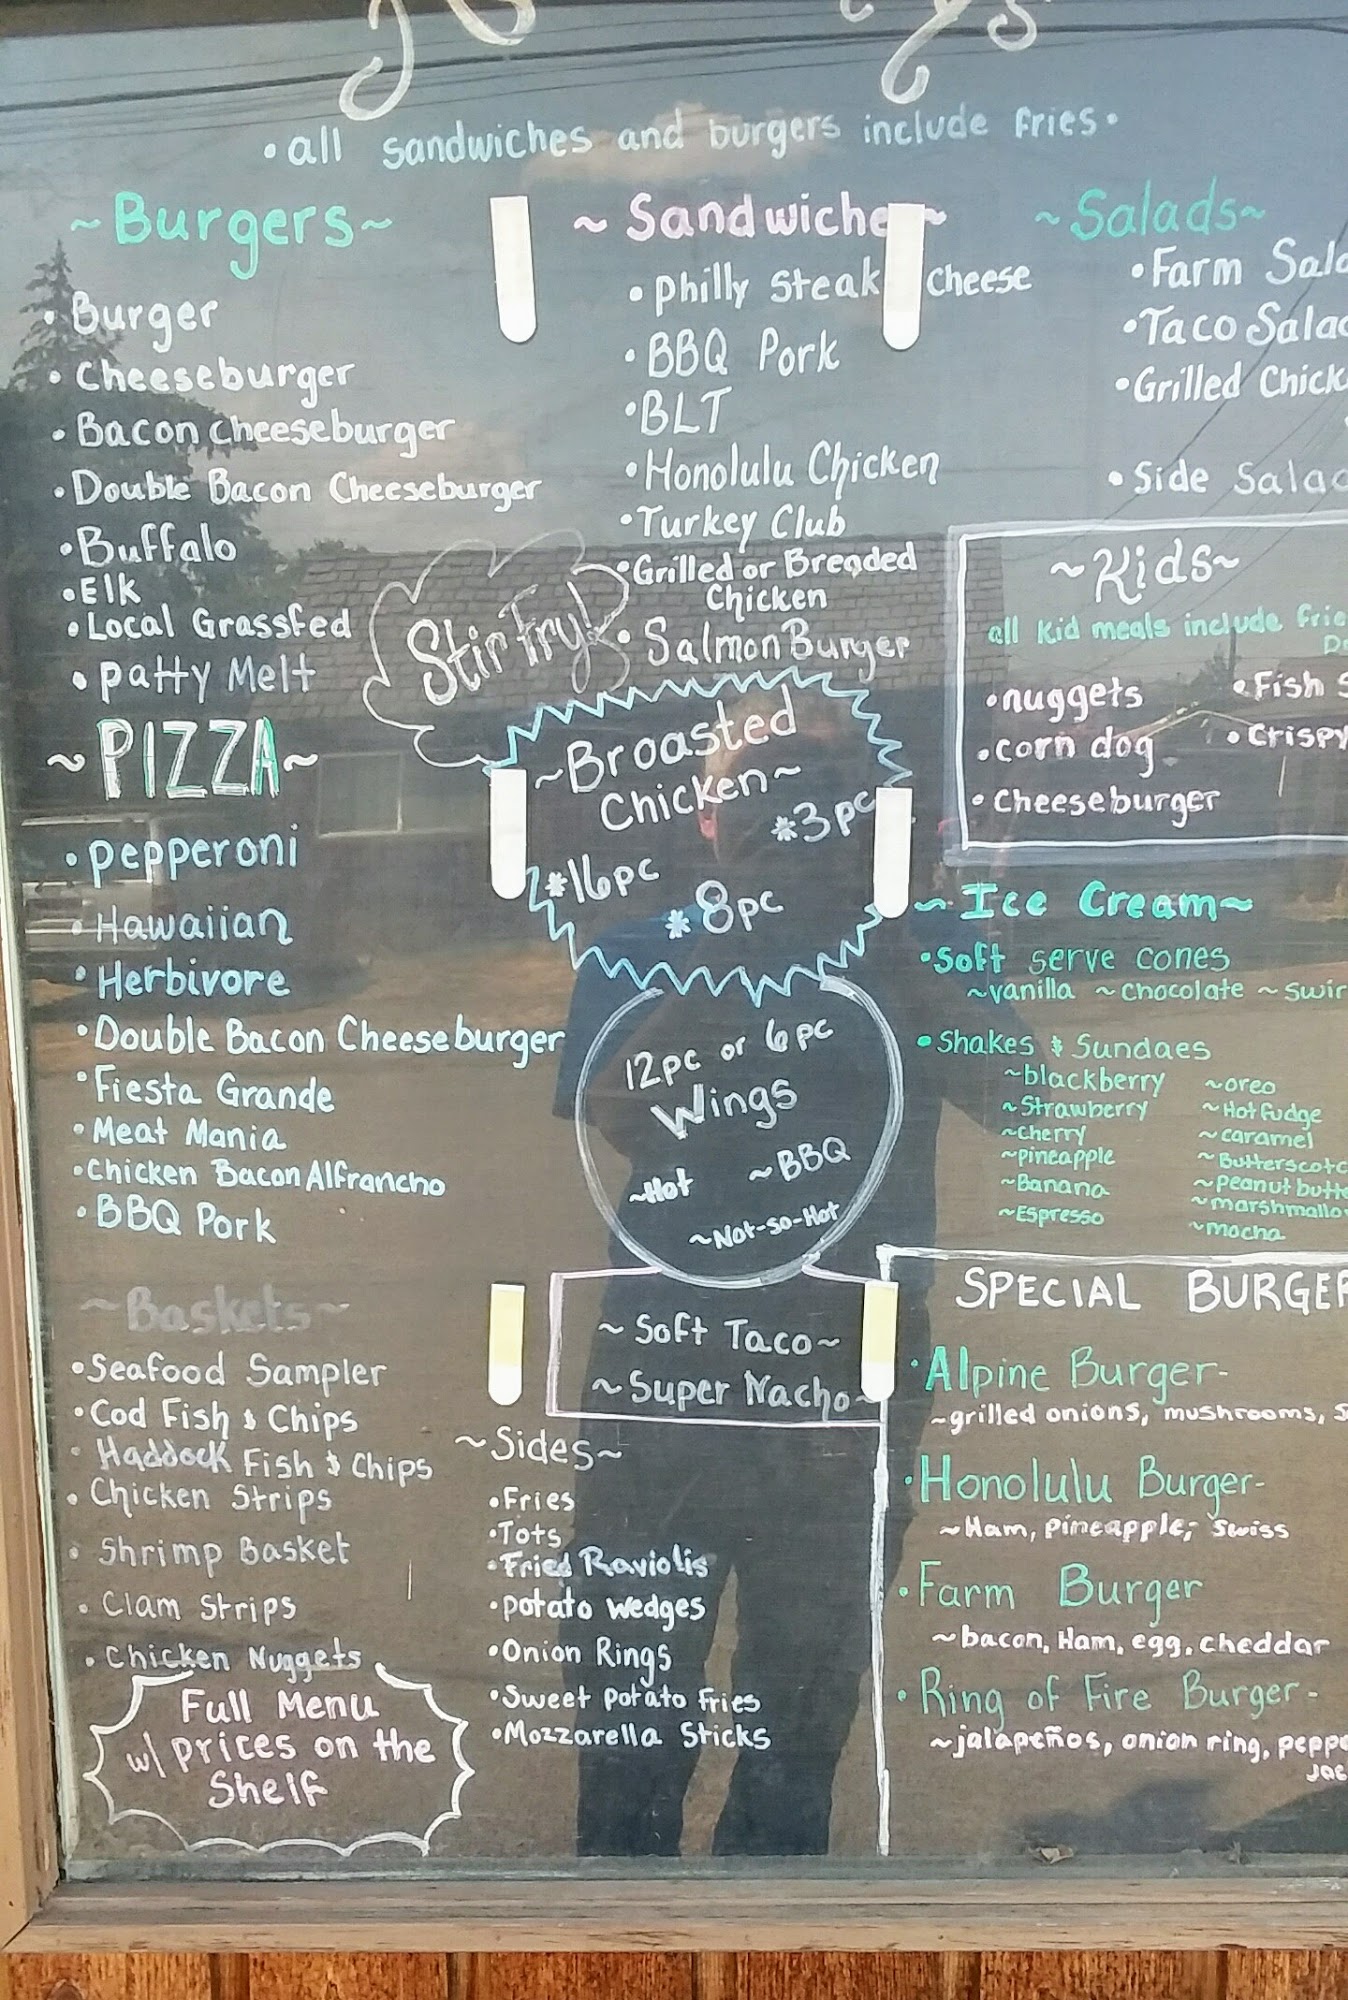 • all sandwiches and burgers include fries •
~ Burgers ~
• Burger
• Cheeseburger
• Bacon Cheeseburger
• Double Bacon Cheeseburger
• Buffalo
• Elk
• Local Grassfed
• Patty Melt
~ PIZZA ~
• Pepperoni
• Hawaiian
• Herbivore
• Double Bacon Cheeseburger
• Fiesta Grande
• Meat Mania
• Chicken Bacon Alfrancho
• BBQ Pork
~ Baskets ~
• Seafood Sampler
• Cod Fish & Chips
• Haddock Fish & Chips
• Chicken Strips
• Shrimp Basket
• Clam Strips
• Chicken Nuggets
Full Menu
w/ prices on the
Shelf
~ Sandwiche ~
• Philly Steak Cheese
• BBQ Pork
• BLT
• Honolulu Chicken
• Turkey Club
• Grilled or Breaded
Chicken
• Salmon Burger
Stir Fry!
~ Broasted
Chicken ~
*3pc
*16pc
*8pc
12pc or 6pc
Wings
~Hot ~BBQ
~Not-so-Hot
~ Soft Taco ~
~ Super Nacho ~
~ Sides ~
• Fries
• Tots
• Fried Raviolis
• Potato Wedges
• Onion Rings
• Sweet Potato Fries
• Mozzarella Sticks
~ Salads ~
• Farm
• Taco
• Grilled
• Side
~ Kids ~
all kid meals include
• nuggets
• corn dog
• Cheeseburger
• Fish
• Crispy
~ Ice Cream ~
• Soft serve cones
~vanilla ~chocolate
• Shakes & Sundaes
~blackberry
~Strawberry
~cherry
~pineapple
~Banana
~Espresso
~oreo
~Hot fudge
~caramel
~Peanut
~mocha
SPECIAL
• Alpine Burger-
~grilled onions, mushrooms,
• Honolulu Burger-
~Ham, pineapple, Swiss
• Farm Burger
~bacon, Ham, egg, cheddar
• Ring of Fire Burger-
~jalapeños, onion ring,